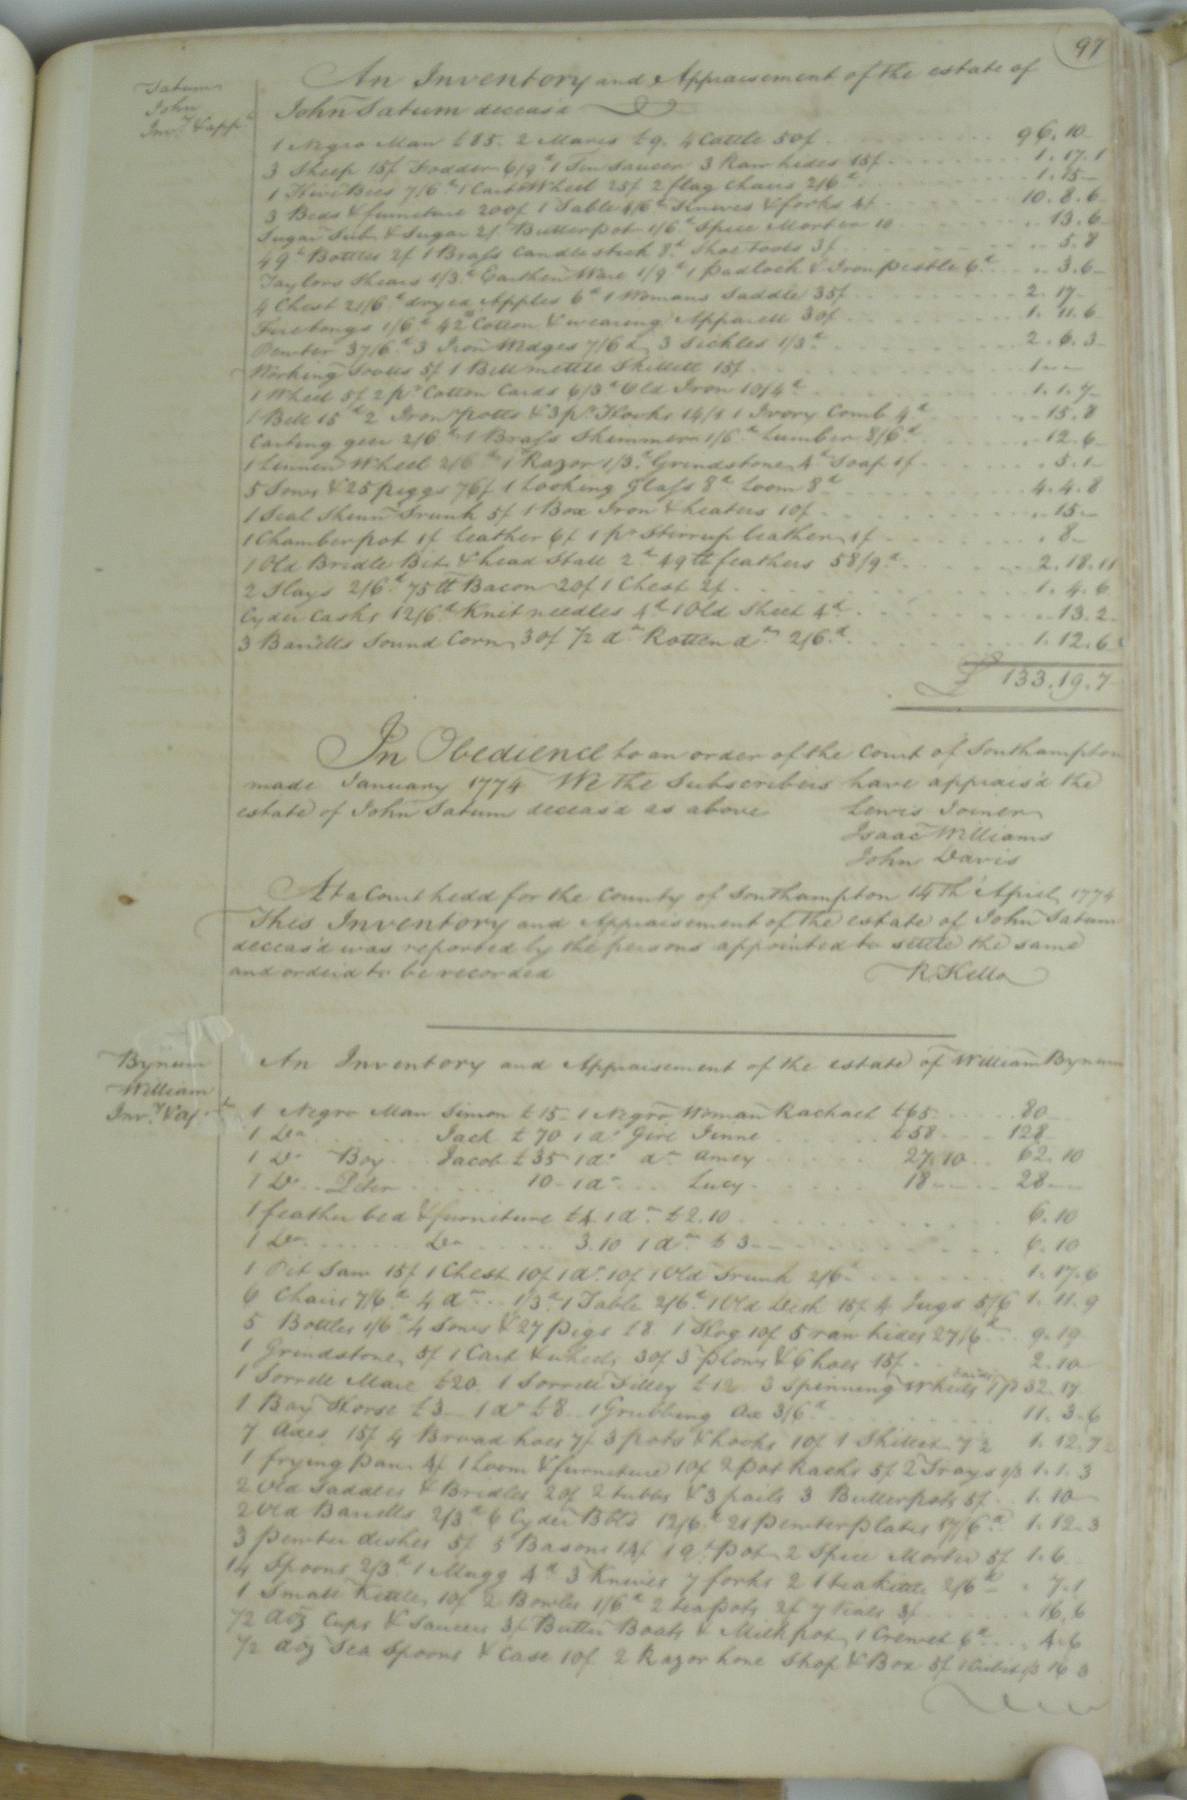 97
Tatum
John
Inv.y & app.t
An Inventory and Appraisement of the estate of
John Tatum deceas'd
1 Negro Man £85. 2 Mares £9. 4 Cattle 50/ 96.10
3 Sheep 15/ Fodder 6/9d 1 Tin Saucer 3 Raw hides 15/ 1.17.1
1 Hive Bees 7/6d 1 Cart Wheel 25/ 2 flag Chairs 2/6d 1.15
3 Beds & furniture 200/ 1 Table 4/6d Knives & forks 4/ 10.8.6
Sugar Tub & Sugar 2/ Butterpot 1/6d Spice Morter 10 13.6
4 qt Bottles 2/ 1 Brass Candlestick 8d Shoe Tools 3/ 5.8
Taylors Shears 1/3d Earthen Ware 1/9d 1 padlock & Iron pestle 6d 3.6
4 Chest 21/6d dryed Apples 6d 1 Womans Saddle 35/ 2.17
Fire tongs 1/6d 42lb Cotton & wearing Apparell 30/ 1.11.6
Pewter 37/6d 3 Iron Wedges 7/6d 3 Sickles 1/3d 2.6.3
Working Tools 5/ 1 Bell mettle Skillett 15/ 1
1 Wheel 5/ 2 pr Cotton Cards 6/3d Old Iron 10/4d 1.1.7
1 Bell 15d 2 Iron potts & 3 pr Hooks 14/1 1 Ivory Comb 4d 15.8
Carting geer 2/6d 1 Brass Skimmer 1/6d Lumber 8/6d 12.6
1 Linnen Wheel 2/6d 1 Razor 1/3d Grindstone 4d Soap 1/ 5.1
5 Sows & 25 piggs 76/ 1 Looking Glass 8d Loom 8d 4.4.8
1 Seal Skinn Trunk 5/ 1 Box Iron & heaters 10/ 15
1 Chamberpot 1/ leather 6/ 1 pr Stirrup leathers 1/ 8
1 Old Bridle Bit & head Stall 2d 49 lb feathers 58/9d 2.18.11
2 Slays 2/6d 75 lb Bacon 20/ 1 Chest 2/ 1.4.6
Cyder Casks 12/6d Knit needles 4d 1 Old Sheet 4d 13.2
3 Barrells Sound Corn 30/ 1/2 do Rotten do 2/6d 1.12.6
£ 133.19.7
In Obedience to an order of the Court of Southampton
made January 1774 We the Subscribers have apprais'd the
estate of John Tatum deceas'd as above Lewis Joiner
Isaac Williams
John Davis
At a Court held for the County of Southampton 14th April 1774
This Inventory and Appraisement of the estate of John Tatum
deceas'd was reported by the persons appointed to settle the same
and order'd to be recorded R. Kello
Bynum
William
Inv.y & ap.t
An Inventory and Appraisement of the estate of William Bynum
1 Negro Man Simon £15 1 Negro Woman Rachael £65 80
1 Do Jack £70 1 do Girl Jinne £58 128
1 Do Boy Jacob £35 1 do do Amey 27.10 62.10
1 Do Peter 10 1 do Lucy 18 28
1 feather bed & furniture £4 1 do £2.10 6.10
1 Do Do 3.10 1 do £3 6.10
1 Pit Saw 15/ 1 Chest 10/ 1 do 10/ 1 Old Trunk 2/6d 1.17.6
6 Chairs 7/6d 4 do 1/3d 1 Table 2/6d 1 Old Desk 15/ 4 Jugs 5/6 1.11.9
5 Bottles 1/6d 4 Sows & 27 pigs £8 1 Hog 10/ 5 raw hides 27/6d 9.19
1 Grindstone 5/ 1 Cart & wheels 30/ 3 plows & 6 hoes 15/ 2.10
1 Sorrell Mare £20 1 Sorrell Filley £12 3 Spinning Wheels 32.17
1 Bay Horse £3 1 do £8 1 Grubbing Ax 3/6d 11.3.6
7 Axes 15/ 4 Broad hoes 7/ 3 pots & hooks 10/ 1 Skillet 7 1/2 1.12.7 1/2
1 frying pan 4/ 1 Loom & furniture 10/ 2 pot Racks 5/ 2 Trays 2/3 1.1.3
2 Old Saddles & Bridles 20/ 2 tubbs & 3 pails 3 Butterpots 5/ 1.10
2 Old Barrells 2/3d 6 Cyder Bbls 12/6d 21 pewter plates 17/6d 1.12.3
3 pewter dishes 5/ 5 Basons 14/ 1 qt Pot 2 Spice Morter 5/ 1.6
14 Spoons 2/3d 1 Mugg 4d 3 Knives 7 forks 2 1 teakittle 2/6d 7.1
1 Small Kettle 10/ 2 Bowles 1/6d 2 teapots 2/ 7 Vials 3/ 16.6
1/2 doz Cups & Saucers 3/ Butter Boats & Milkpot 1 Crewet 6d 4.6
1/2 doz Tea Spoons & Case 10/ 2 Razor hone Strop & Box 5/ 16 3